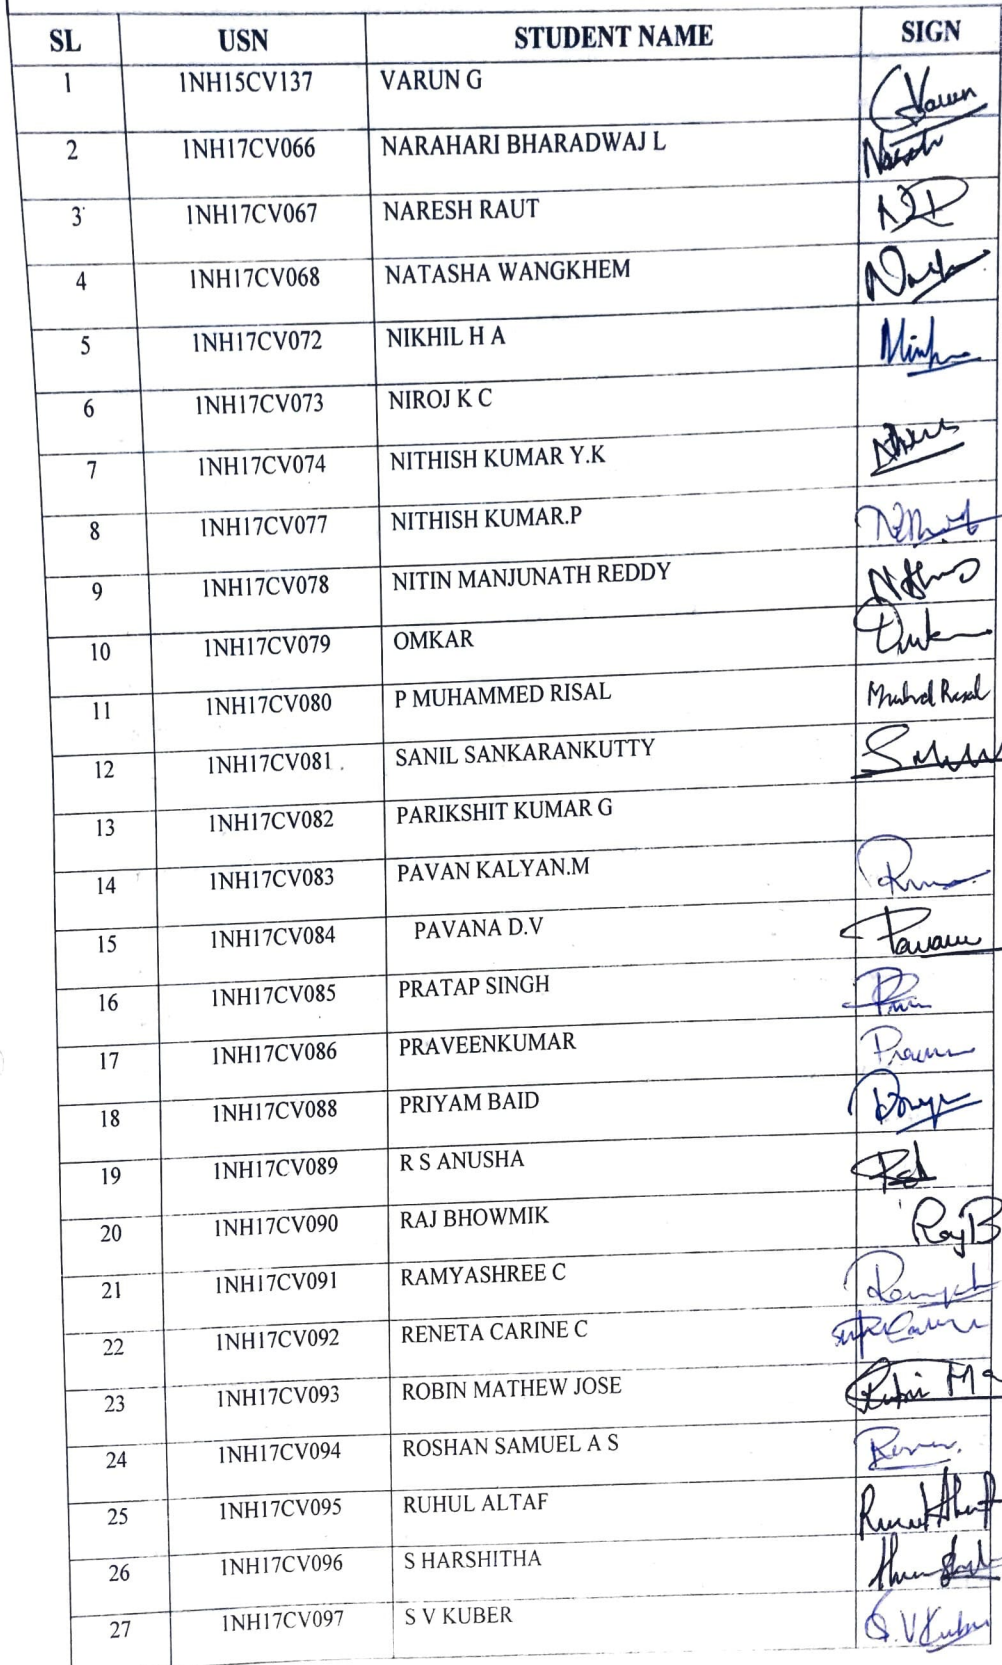 SL USN STUDENT NAME SIGN
1 1NH15CV137 VARUN G Varun
2 1NH17CV066 NARAHARI BHARADWAJ L
3 1NH17CV067 NARESH RAUT
4 1NH17CV068 NATASHA WANGKHEM
5 1NH17CV072 NIKHIL H A
6 1NH17CV073 NIROJ K C
7 1NH17CV074 NITHISH KUMAR Y.K
8 1NH17CV077 NITHISH KUMAR.P
9 1NH17CV078 NITIN MANJUNATH REDDY
10 1NH17CV079 OMKAR
11 1NH17CV080 P MUHAMMED RISAL
12 1NH17CV081 SANIL SANKARANKUTTY
13 1NH17CV082 PARIKSHIT KUMAR G
14 1NH17CV083 PAVAN KALYAN.M
15 1NH17CV084 PAVANA D.V
16 1NH17CV085 PRATAP SINGH
17 1NH17CV086 PRAVEENKUMAR
18 1NH17CV088 PRIYAM BAID
19 1NH17CV089 R S ANUSHA
20 1NH17CV090 RAJ BHOWMIK Raj B
21 1NH17CV091 RAMYASHREE C
22 1NH17CV092 RENETA CARINE C
23 1NH17CV093 ROBIN MATHEW JOSE
24 1NH17CV094 ROSHAN SAMUEL A S
25 1NH17CV095 RUHUL ALTAF
26 1NH17CV096 S HARSHITHA
27 1NH17CV097 S V KUBER S.V Kuber